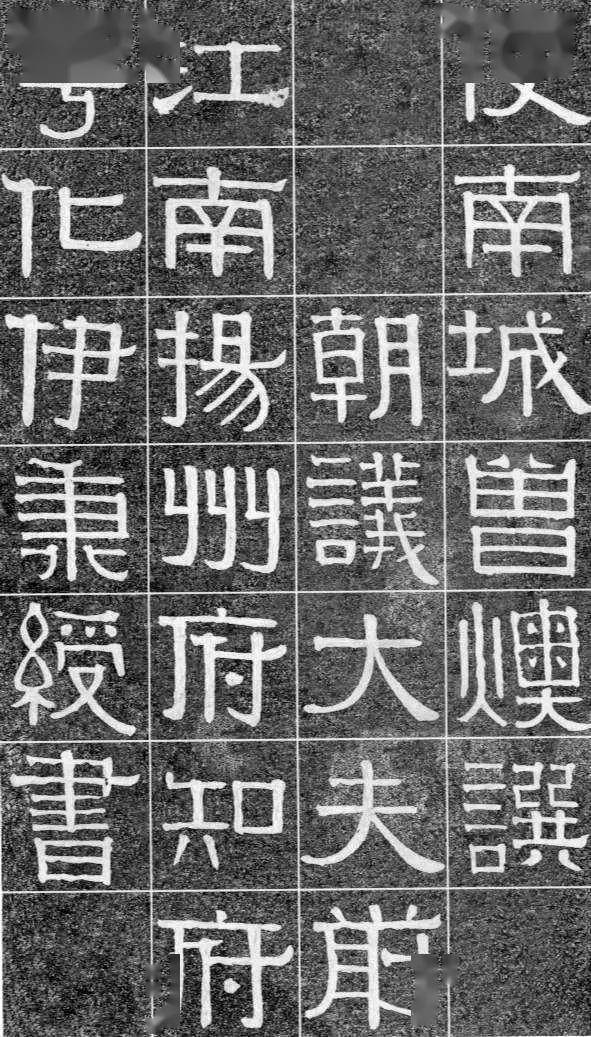 南城曾燠譔
朝議大夫前
江南揚州府知府
化伊秉綬書